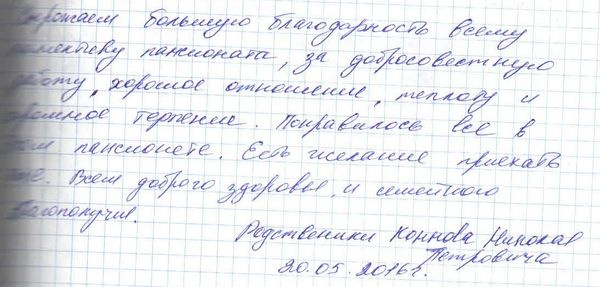 Выражаем большую благодарность всему
коллективу пансионата, за добросовестную
работу, хорошое отношение, теплоту и
огромное терпение. Понравилось все в
пансионете. Есть желание приехать
еще. Всем доброго здоровья, и семейного
благополучия.
Родственики Коннова Николая
Петровича
20.05.2016г.